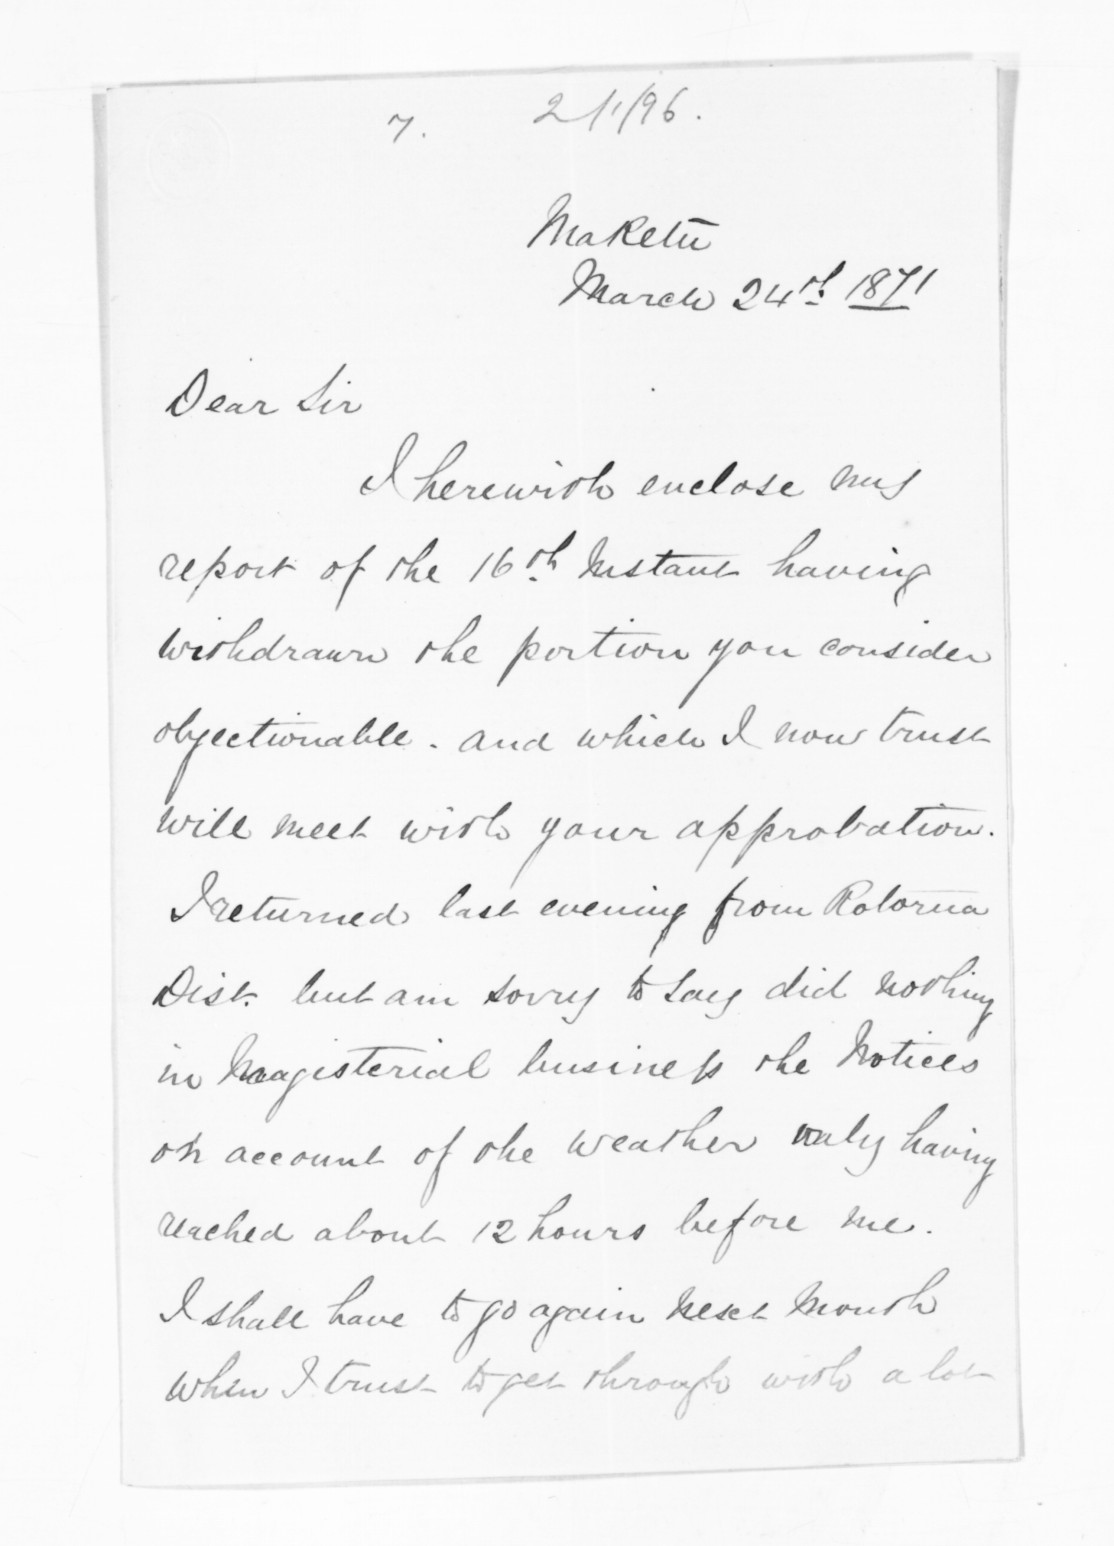 7. 2/1/96.
Maketū
March 24th. 1871
Dear Sir
I herewith enclose my
report of the 16th. Instant having
withdrawn the portion you consider
objectionable. and which I now trust
will meet with your approbation.
I returned last evening from Rotorua
Dist. but am sorry to say did nothing
in Magisterial business the Notices
on account of the weather only having
reached about 12 hours before me.
I shall have to go again next Month
when I trust to get through with a lot